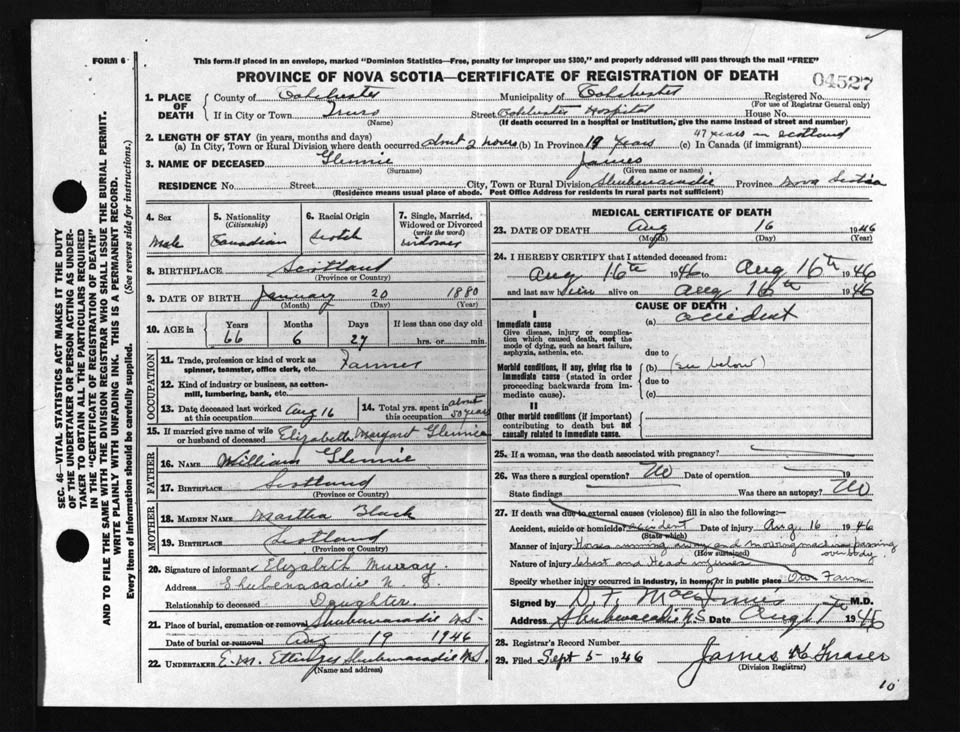 FORM 6
This form if placed in an envelope, marked "Dominion Statistics—Free, penalty for improper use $300," and properly addressed will pass through the mail "FREE"
PROVINCE OF NOVA SCOTIA—CERTIFICATE OF REGISTRATION OF DEATH
04527
1. PLACE OF DEATH
County of Colchester Municipality of Colchester Registered No.
(For use of Registrar General only)
If in City or Town Truro Street Colchester Hospital House No.
(Name) (If death occurred in a hospital or institution, give the name instead of street and number)
2. LENGTH OF STAY (in years, months and days) 47 years in Scotland
(a) In City, Town or Rural Division where death occurred about 2 hours (b) In Province 19 years (c) In Canada (if immigrant)
3. NAME OF DECEASED Glennie James
(Surname) (Given name or names)
RESIDENCE No. Street City, Town or Rural Division Shubenacadie Province Nova Scotia
(Residence means usual place of abode. Post Office Address for residents in rural parts not sufficient)
SEC. 46—VITAL STATISTICS ACT MAKES IT THE DUTY
OF THE UNDERTAKER OR PERSON ACTING AS UNDER-
TAKER TO OBTAIN ALL THE PARTICULARS REQUIRED
IN THE "CERTIFICATE OF REGISTRATION OF DEATH"
AND TO FILE THE SAME WITH THE DIVISION REGISTRAR WHO SHALL ISSUE THE BURIAL PERMIT.
WRITE PLAINLY WITH UNFADING INK. THIS IS A PERMANENT RECORD.
Every item of information should be carefully supplied. (See reverse side for instructions.)
4. Sex
Male
5. Nationality
(Citizenship)
Canadian
6. Racial Origin
Scotch
7. Single, Married, Widowed or Divorced
(write the word)
widower
8. BIRTHPLACE Scotland
(Province or Country)
9. DATE OF BIRTH January 20 1880
(Month) (Day) (Year)
10. AGE in Years Months Days If less than one day old
66 6 27 hrs. or min.
OCCUPATION
11. Trade, profession or kind of work as spinner, teamster, office clerk, etc. Farmer
12. Kind of industry or business, as cotton-mill, lumbering, bank, etc.
13. Date deceased last worked at this occupation Aug 16
14. Total yrs. spent in this occupation about 50 years
15. If married give name of wife or husband of deceased Elizabeth Margart Glennie
FATHER
16. NAME William Glennie
17. BIRTHPLACE Scotland
(Province or Country)
MOTHER
18. MAIDEN NAME Martha Black
19. BIRTHPLACE Scotland
(Province or Country)
20. Signature of informant Elizabeth Murray
Address Shubenacadie N.S.
Relationship to deceased Daughter.
21. Place of burial, cremation or removal Shubenacadie NS
Date of burial or removal Aug 19 1946
22. UNDERTAKER E.M. Ettinger Shubenacadie N.S.
(Name and address)
MEDICAL CERTIFICATE OF DEATH
23. DATE OF DEATH Aug 16 1946
(Month) (Day) (Year)
24. I HEREBY CERTIFY that I attended deceased from:
Aug 16th 1946 to Aug 16th 1946
and last saw him alive on Aug 16th 1946
CAUSE OF DEATH
I
Immediate cause (a) accident
Give disease, injury or complication which caused death, not the mode of dying, such as heart failure, asphyxia, asthenia, etc.
due to
Morbid conditions, if any, giving rise to immediate cause (stated in order proceeding backwards from immediate cause).
(b) (see below)
due to
(c)
II
Other morbid conditions (if important) contributing to death but not causally related to immediate cause.
25. If a woman, was the death associated with pregnancy?
26. Was there a surgical operation? No Date of operation 19
State findings Was there an autopsy? No
27. If death was due to external causes (violence) fill in also the following:
Accident, suicide or homicide? accident Date of injury Aug. 16 1946
(State which)
Manner of injury Horses running away and mowing machine passing over body
(How sustained)
Nature of injury Chest and Head injuries
Specify whether injury occurred in industry, in home, or in public place Own Farm
Signed by M.D.
Address Shubenacadie N.S. Date Aug 17th 1946
28. Registrar's Record Number
29. Filed Sept 5 1946 James H Fraser
(Division Registrar)
10